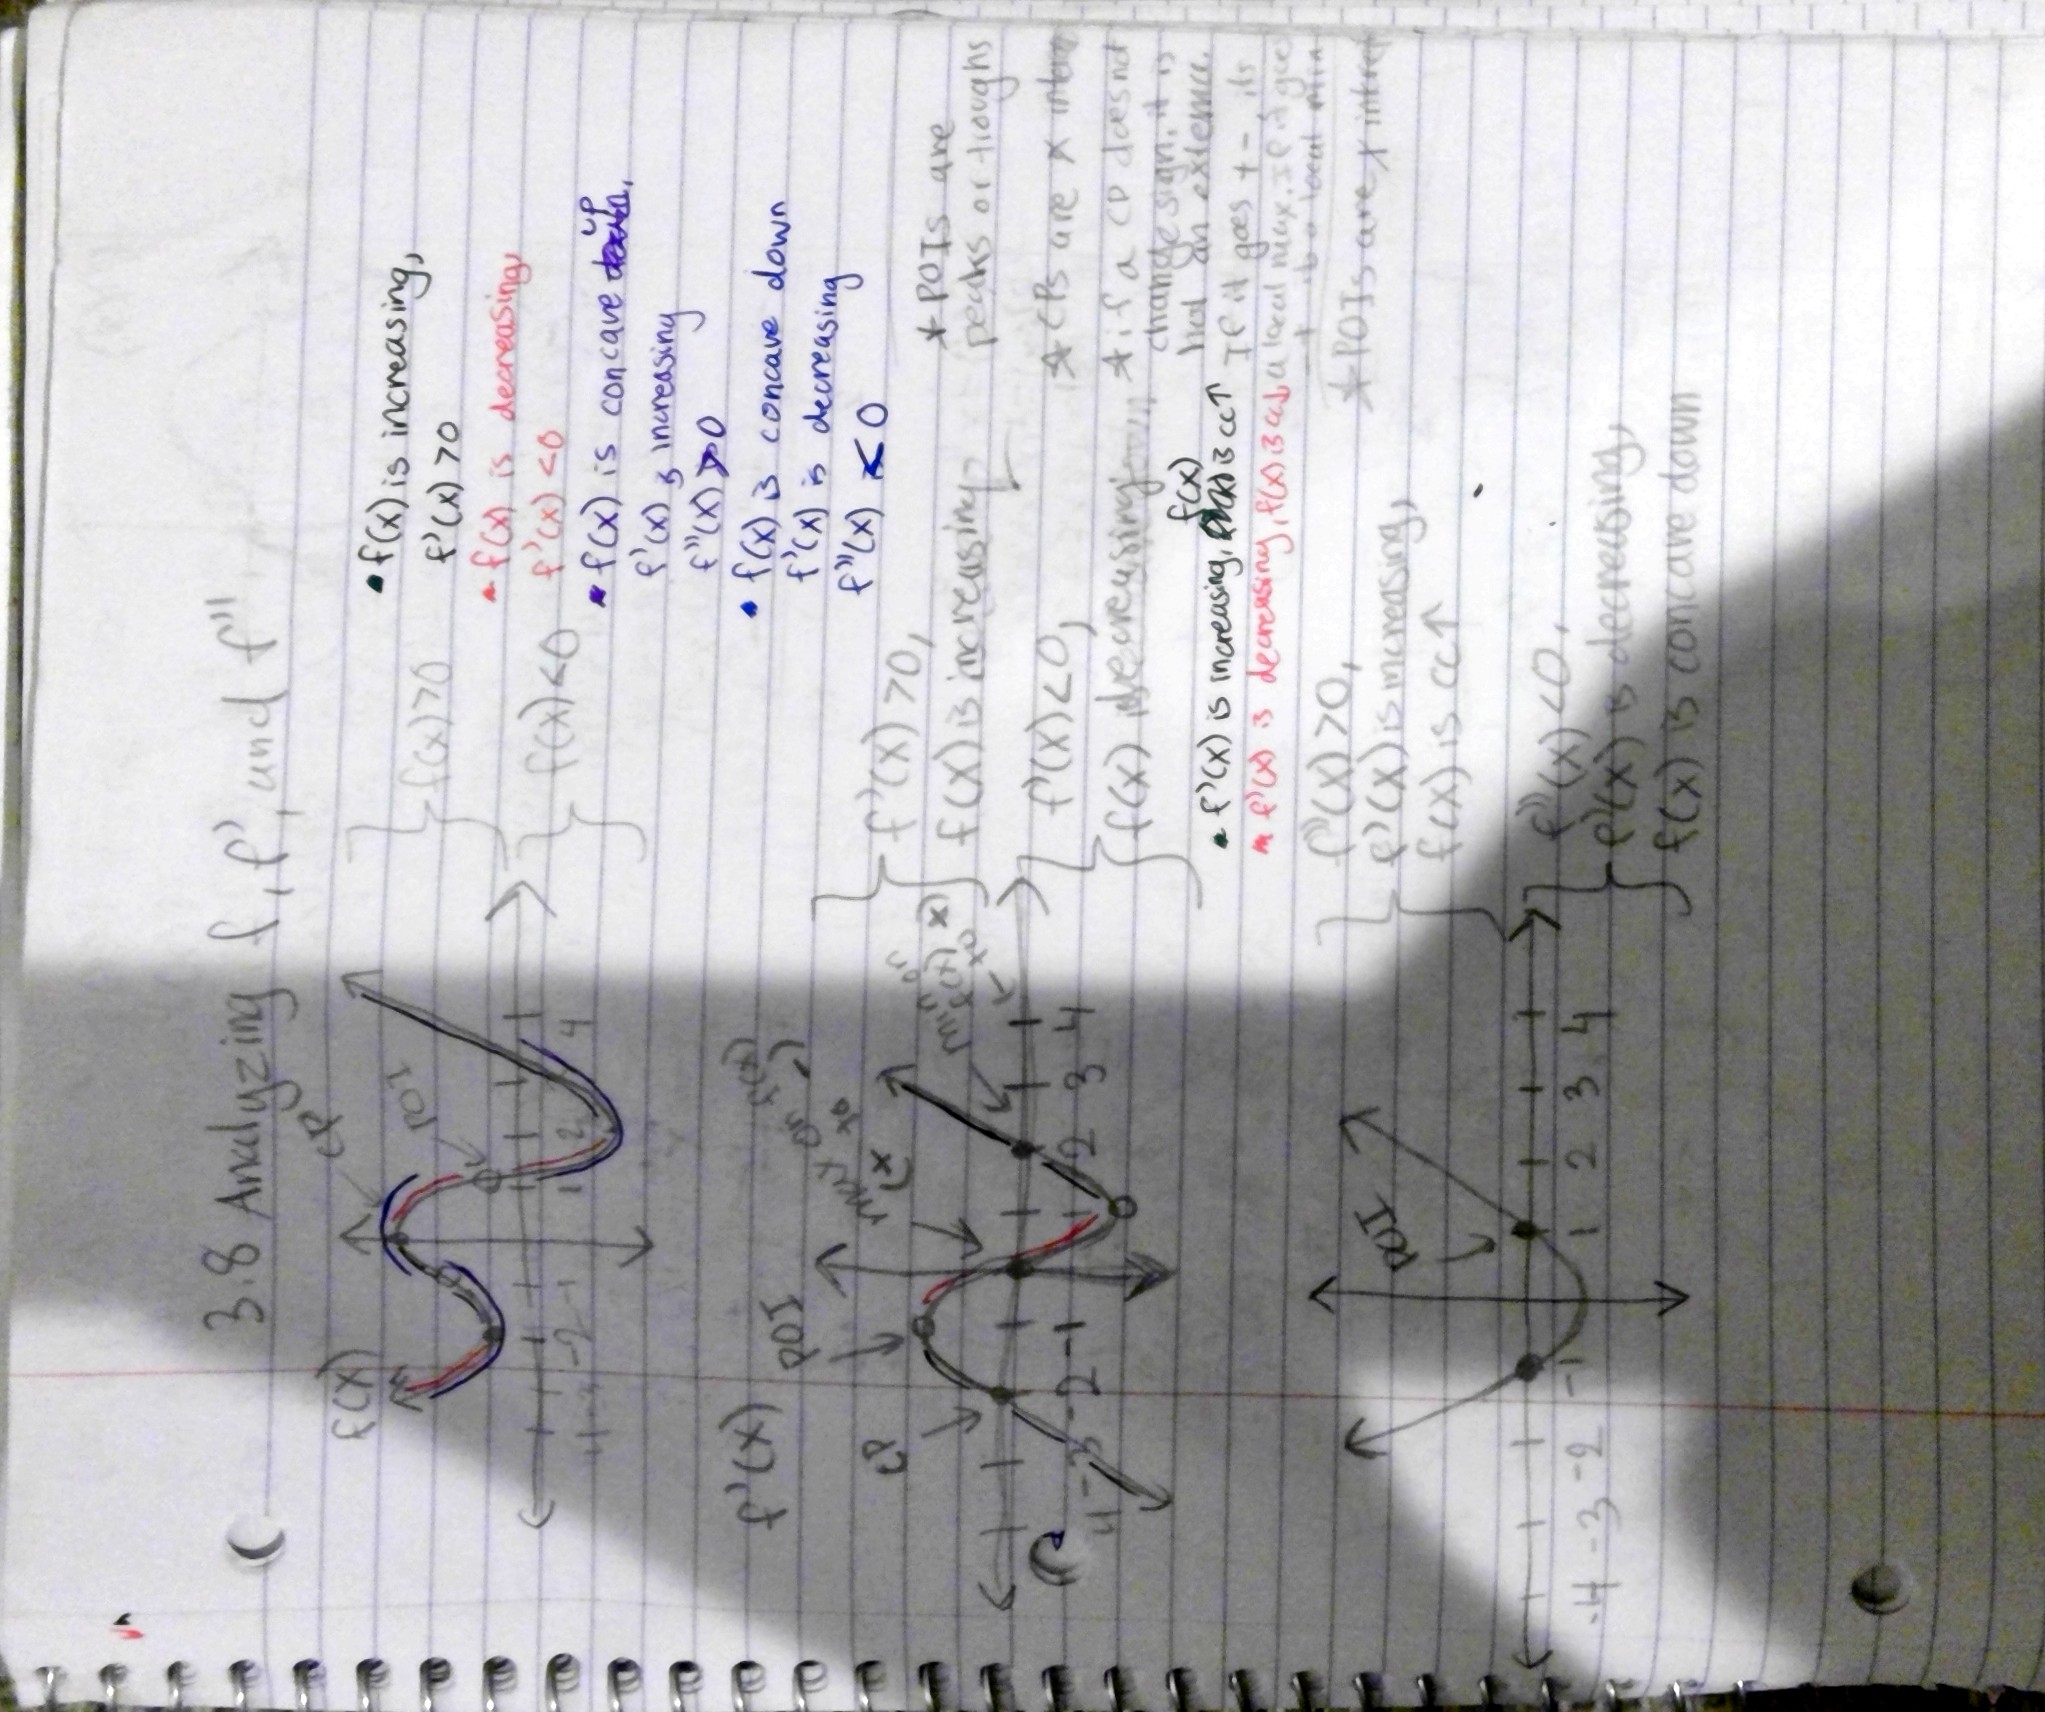 3.8 Analyzing f, f', and f"
f(x)
CP
POI
-2 -1 1 2 4
f(x)>0
f(x)<0
• f(x) is increasing,
f'(x)>0
• f(x) is decreasing,
f'(x)<0
• f(x) is concave up
f'(x) is increasing
f"(x)>0
• f(x) is concave down
f'(x) is decreasing
f"(x)<0
f'(x)
CP
POI
max on f(x)
min on
f(x)
-3 -2 -1 1 2 3 4
f'(x)>0,
f(x) is increasing
f'(x)<0,
f(x) decreasing
* POIs are
peaks or troughs
* CPs are x
* if a CP does not
change sign, it is
not an extema.
If it goes + - its
a local max. If it goes
- + local min
• f'(x) is increasing, f(x) is cc↑
• f'(x) is decreasing, f(x) is cc↓
* POIs are x
POI
-4 -3 -2 -1 1 2 3 4
f"(x)>0,
f'(x) is increasing,
f(x) is cc↑
f"(x)<0,
f'(x) is decreasing,
f(x) is concave down